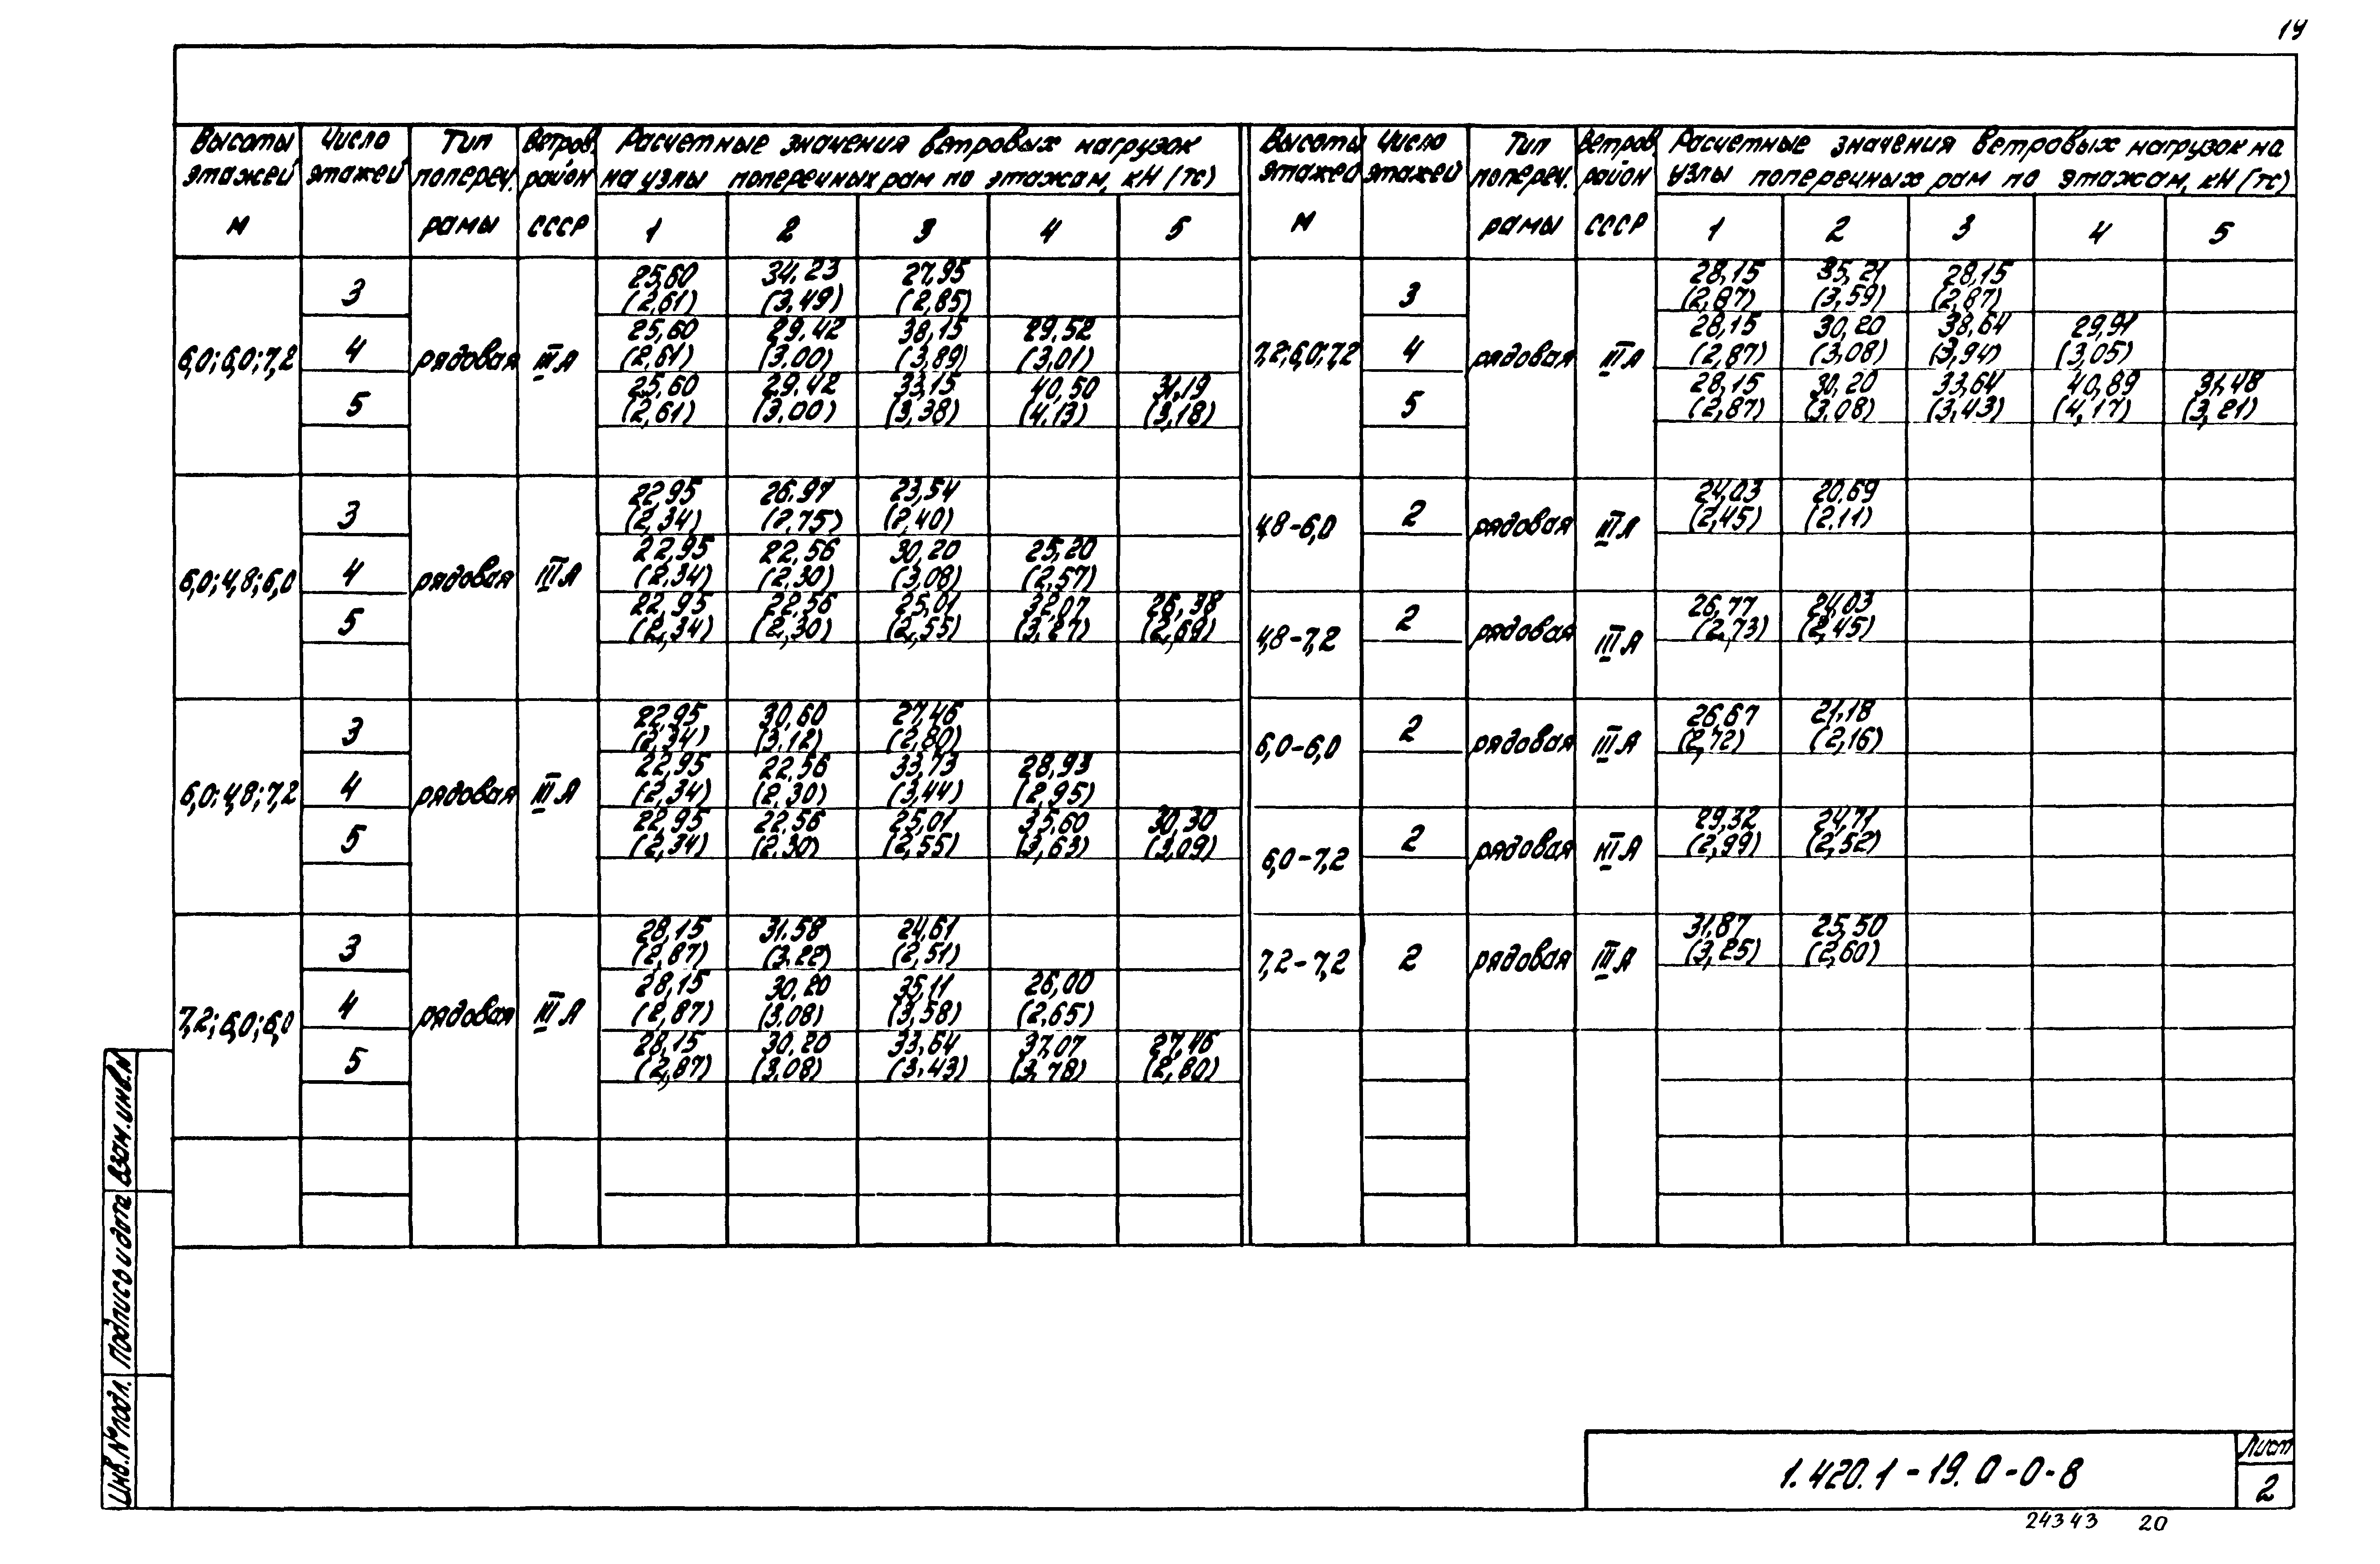 19
Высоты этажей м
Число этажей
Тип попереч. рамы
Ветров. район СССР
Расчетные значения ветровых нагрузок на узлы поперечных рам по этажам, кН (тс)
1 2 3 4 5
6,0; 6,0; 7,2 рядовая III А
3 25,60 34,23 27,95
(2,61) (3,49) (2,85)
4 25,60 29,42 38,15 29,52
(2,61) (3,00) (3,89) (3,01)
5 25,60 29,42 33,15 40,50 31,19
(2,61) (3,00) (3,38) (4,13) (3,18)
6,0; 4,8; 6,0 рядовая III А
3 22,95 26,97 23,54
(2,34) (2,75) (2,40)
4 22,95 22,56 30,20 25,20
(2,34) (2,30) (3,08) (2,57)
5 22,95 22,56 25,01 32,07 26,38
(2,34) (2,30) (2,55) (3,27) (2,69)
6,0; 4,8; 7,2 рядовая III А
3 22,95 30,60 27,46
(2,34) (3,12) (2,80)
4 22,95 22,56 33,73 28,93
(2,34) (2,30) (3,44) (2,95)
5 22,95 22,56 25,01 35,60 30,30
(2,34) (2,30) (2,55) (3,63) (3,09)
7,2; 6,0; 6,0 рядовая III А
3 28,15 31,58 24,61
(2,87) (3,22) (2,51)
4 28,15 30,20 35,11 26,00
(2,87) (3,08) (3,58) (2,65)
5 28,15 30,20 33,64 37,07 27,46
(2,87) (3,08) (3,43) (3,78) (2,80)
Высоты этажей м
Число этажей
Тип попереч. рамы
Ветров. район СССР
Расчетные значения ветровых нагрузок на узлы поперечных рам по этажам, кН (тс)
1 2 3 4 5
7,2; 6,0; 7,2 рядовая III А
3 28,15 35,21 28,15
(2,87) (3,59) (2,87)
4 28,15 30,20 38,64 29,91
(2,87) (3,08) (3,94) (3,05)
5 28,15 30,20 33,64 40,89 31,48
(2,87) (3,08) (3,43) (4,17) (3,21)
4,8-6,0 2 рядовая III А 24,03 20,69
(2,45) (2,11)
4,8-7,2 2 рядовая III А 26,77 24,03
(2,73) (2,45)
6,0-6,0 2 рядовая III А 26,67 21,18
(2,72) (2,16)
6,0-7,2 2 рядовая III А 29,32 24,71
(2,99) (2,52)
7,2-7,2 2 рядовая III А 31,87 25,50
(3,25) (2,60)
Инв. № подл. Подпись и дата Взам. инв. №
1.420.1-19.0-0-8
Лист
2
24343 20